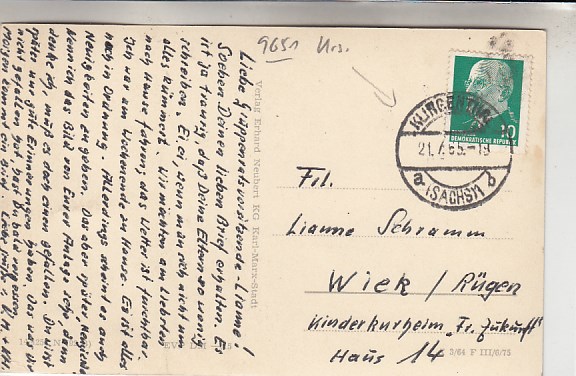 9651 Krs.
Liebe Gruppenratsvorsitzende-Liane!
Soeben Deinen lieben Brief erhalten. Es
ist ja traurig, daß Deine Eltern so wenig
schreiben. Ei, ei, wenn man sich nicht um
alles kümmert. Wir möchten am liebsten
nach Hause fahren, das Wetter ist furchtbar.
Ich war am Wochenende zu Hause. Es ist alles
noch in Ordnung. Allerdings scheint es auch
Neuigkeiten zu geben. Das aber später.
Wenn ich das Bild von Eurer Anlage sehe, dann
denke ich, muß es doch einem gefallen. Du wirst
später nur gute Erinnerungen haben. Das was Dir
nicht gefallen hat hast Du bald vergessen.
Morgen kommt ein
Verlag Erhard Neubert KG Karl-Marx-Stadt
KLINGENTHAL
21.4.65.-19
(SACHS) 1
10
DEUTSCHE DEMOKRATISCHE REPUBLIK
Frl.
Lianne Schramm
Wiek / Rügen
Kinderkurheim „Fr. Zukunft"
Haus 14
3/64 F III/6/75